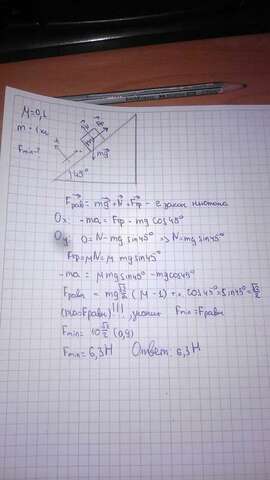 μ=0,1
m = 1 кг
Fmin-?
N
Fтр
mg
45°
Fрав = mg + N + Fтр - 2 закон Ньютона
Ox: -ma = Fтр - mg cos45°
Oy: 0 = N - mg sin45° => N = mg sin45°
Fтр = μN = μ mg sin45°
-ma = μ mg sin45° - mg cos45°
Fравн = mg √2/2 (μ - 1) т.к. cos45° = sin45° = √2/2
(ma = Fравн)!!!, значит Fmin = Fравн
Fmin = 10 √2/2 (0,9)
Fmin = 6,3 Н Ответ: 6,3 Н